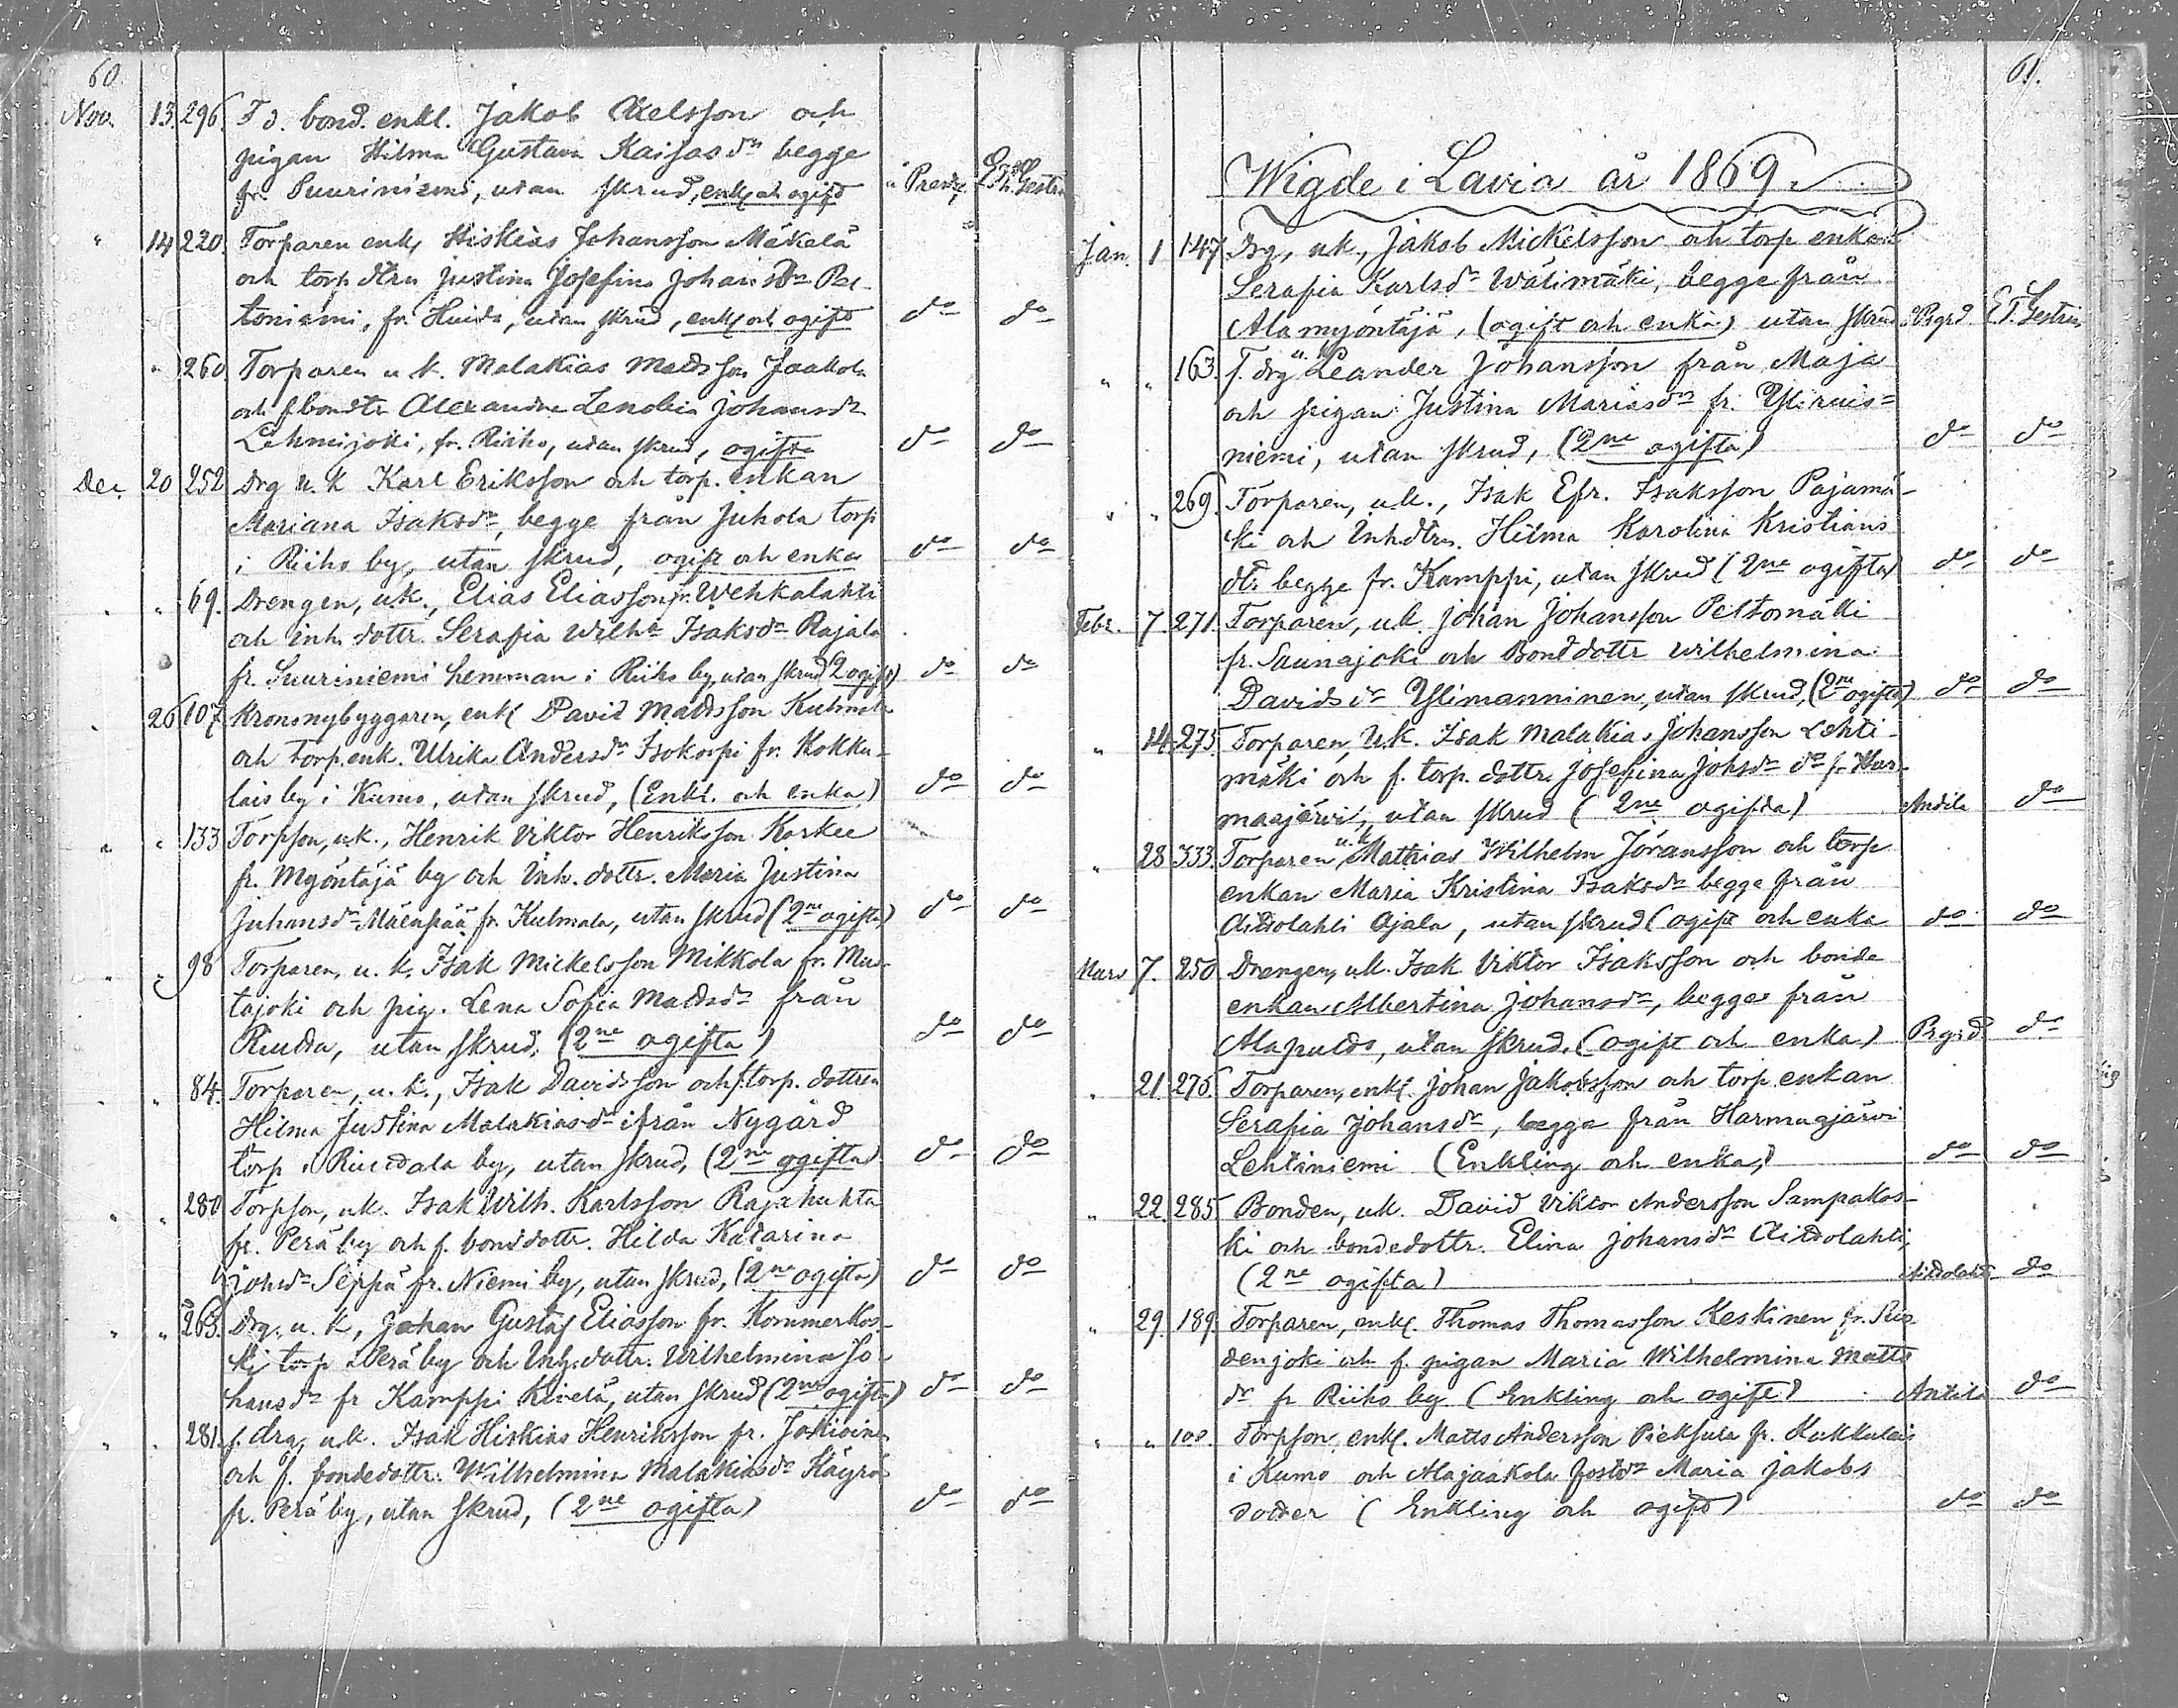 60.
Nov. 13. 296. F d. bond. enkl. Jakob Axelsson och
pigan Hilma Gustava Kaisasdr begge
fr. Suuriniemi, utan skrud, enkl och ogift
" 14 220. Torparen enkl Hiskias Johansson Mäkelä
och torp dtrn Justina Josefina Johansdr Pel-
toniemi, fr. Huida, utan skrud, enkl och ogift do do
" 260. Torparen u. k. Malakias Mattsson Jaakola
och f bondtr Alexandra Zenobia Johansdr
Lehmijoki, fr. Riiho, utan skrud, ogifta do do
Dec. 20 252 Drg u. k Karl Eriksson och torp. enkan
Mariana Isaksdr, begge från Juhola torp
i Riiho by, utan skrud, ogift och enka do do
" " 69. Drengen, u.k., Elias Eliasson fr. Wehkalahti
och inh. dottr. Serafia Wilha Isaksdr Rajala
fr. Suuriniemi hemman i Riiho by, utan skrud (2 ogift) do do
26 107 Kronsnybyggaren, enkl David Mattsson Kulmala
och torp.enk. Ulrika Andersdr Isokorpi fr. Kokku-
lais by i Kumo, utan skrud, (Enkl. och enka) do do
" " 133 Torpson, u.k., Henrik Viktor Henriksson Korkee
fr. Myöntäjä by och Inh. dottr. Maria Justina
Juhansdr Mäenpää fr. Kulmala, utan skrud (2ne ogifta) do do
" " 98 Torparen, u. k. Isak Mickelsson Mikkola fr. Mus-
tajoki och pig. Lena Sofia Mattsdr från
Riudta, utan skrud, (2ne ogifta) do do
" " 84. Torparen, u. k., Isak Davidsson och f. torp. dottren
Hilma Justina Malakiasdr ifrån Nygård
torp i Riuttala by, utan skrud, (2ne ogifta) do do
" " 280 Torpson, u.k. Isak Wilh. Karlsson Rajahuhta
fr. Perä by och f. bonddottr. Hilda Katarina
Johsdr Seppä fr. Niemi by, utan skrud, (2ne ogifta) do do
" " 263. Drg. u. k, Johan Gustaf Eliasson fr. Kommerkos-
ki torp i Perä by och Inh. dottr. Wilhelmina Jo-
hansdr fr Kamppi Kivelä, utan skrud (2ne ogifta) do do
" " 281. f. drg. u.k. Isak Hiskias Henriksson fr. Jokioinen
och f. bondedottr. Wilhelmina Malakiasdr Häyrö
fr. Perä by, utan skrud, (2ne ogifta) do do
61.
Wigde i Lavia år 1869.
Jan. 1 147 Drg, u.k., Jakob Mickelsson och torp enkan
Serafia Karlsdr Wälimäki, begge från
Alamyöntäjä, (ogift och enka) utan skrud Prgrd E.T. Gestrin
" " 163. f. drg u.k. Leander Johansson från Maja
och pigan Justina Mariasdr fr. Yliruis=
niemi, utan skrud, (2ne ogifta) do do
" " 269. Torparen, u.k., Isak Efr. Isaksson Pajamä-
ki och Inh.dtrn. Hilma Karolina Kristians
dtr. begge fr. Kamppi, utan skrud (2ne ogifta) do do
Febr. 7. 271. Torparen, u.k. Johan Johansson Peltomäki
fr. Saunajoki och Bonddottr Wilhelmina
Davidsdr Ylimanninen, utan skrud, (2ne ogifta) do do
" 14. 275. Torparen, u.k. Isak Malakias Johansson Lehti-
mäki och f. torp. dottr. Josefina Johsdr do fr Har-
maajärvi, utan skrud (2ne ogifta) Antila do
" 28 333. Torparen, u.k. Mathias Wilhelm Jöransson och torp
enkan Maria Kristina Isaksdr begge från
Aittolahti Ojala, utan skrud (ogift och enka do do
Mars 7. 250 Drengen, u.k. Isak Viktor Isaksson och bonde
enkan Albertina Johansdr, begge från
Alaputto, utan skrud, (ogift och enka) Prgrd do
" 21 276. Torparen, enkl. Johan Jakobsson och torp. enkan
Serafia Johansdr, begge från Harmaajärvi
Lehtiniemi (Enkling och enka,) do do
" 22. 285 Bonden, u.k. David Viktor Andersson Sampakos-
ki och bondedottr. Elina Johansdr Aittolahti,
(2ne ogifta) Aittolahti do
" 29. 189. Torparen, enkl. Thomas Thomasson Keskinen fr. Suo
denjoki och f. pigan Maria Wilhelmina Matts
dr fr Riiho by (Enkling och ogift) Antila do
" " 100. Torpson, enkl. Matts Andersson Pieksula fr. Kukkulais
i Kumo och Alajaakola fostdr Maria Jakobs
dotter (Enkling och ogift) do do